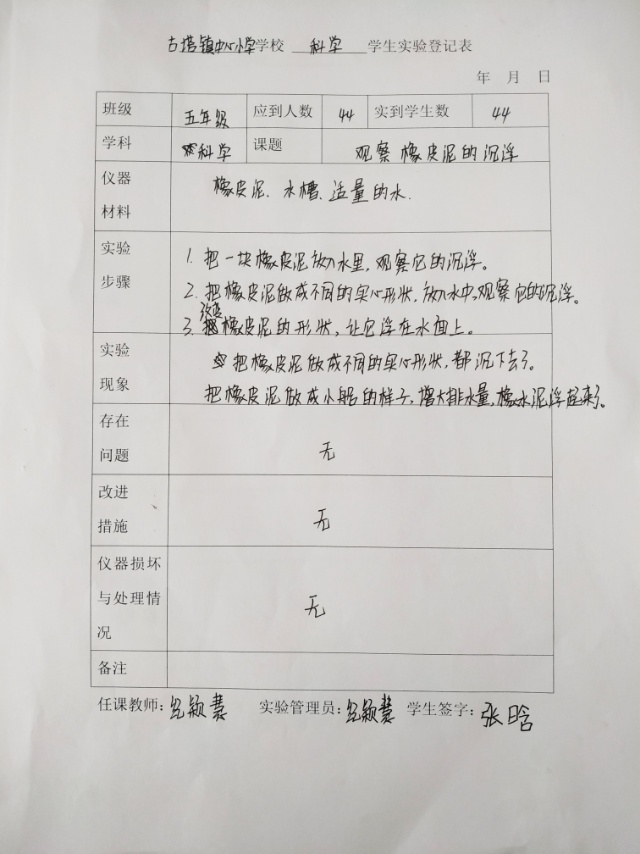 古塔镇中心小学学校 科学 学生实验登记表
年 月 日
班级 五年级 应到人数 44 实到学生数 44
学科 科学 课题 观察橡皮泥的沉浮
仪器材料 橡皮泥、水槽、适量的水.
实验步骤 1. 把一块橡皮泥放入水里,观察它的沉浮。
2. 把橡皮泥做成不同的实心形状,放入水中,观察它的沉浮。
3. 改变橡皮泥的形状,让它浮在水面上。
实验现象 把橡皮泥做成不同的实心形状,都沉下去了。
把橡皮泥做成小船的样子,增大排水量,橡水泥浮起来了。
存在问题 无
改进措施 无
仪器损坏与处理情况 无
备注
任课教师: 颖慧 实验管理员: 颖慧 学生签字: 张晗